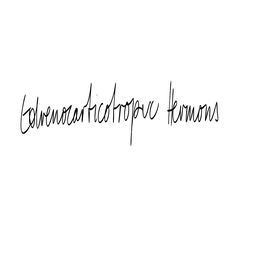 Gdrenocarticotropic Hermons